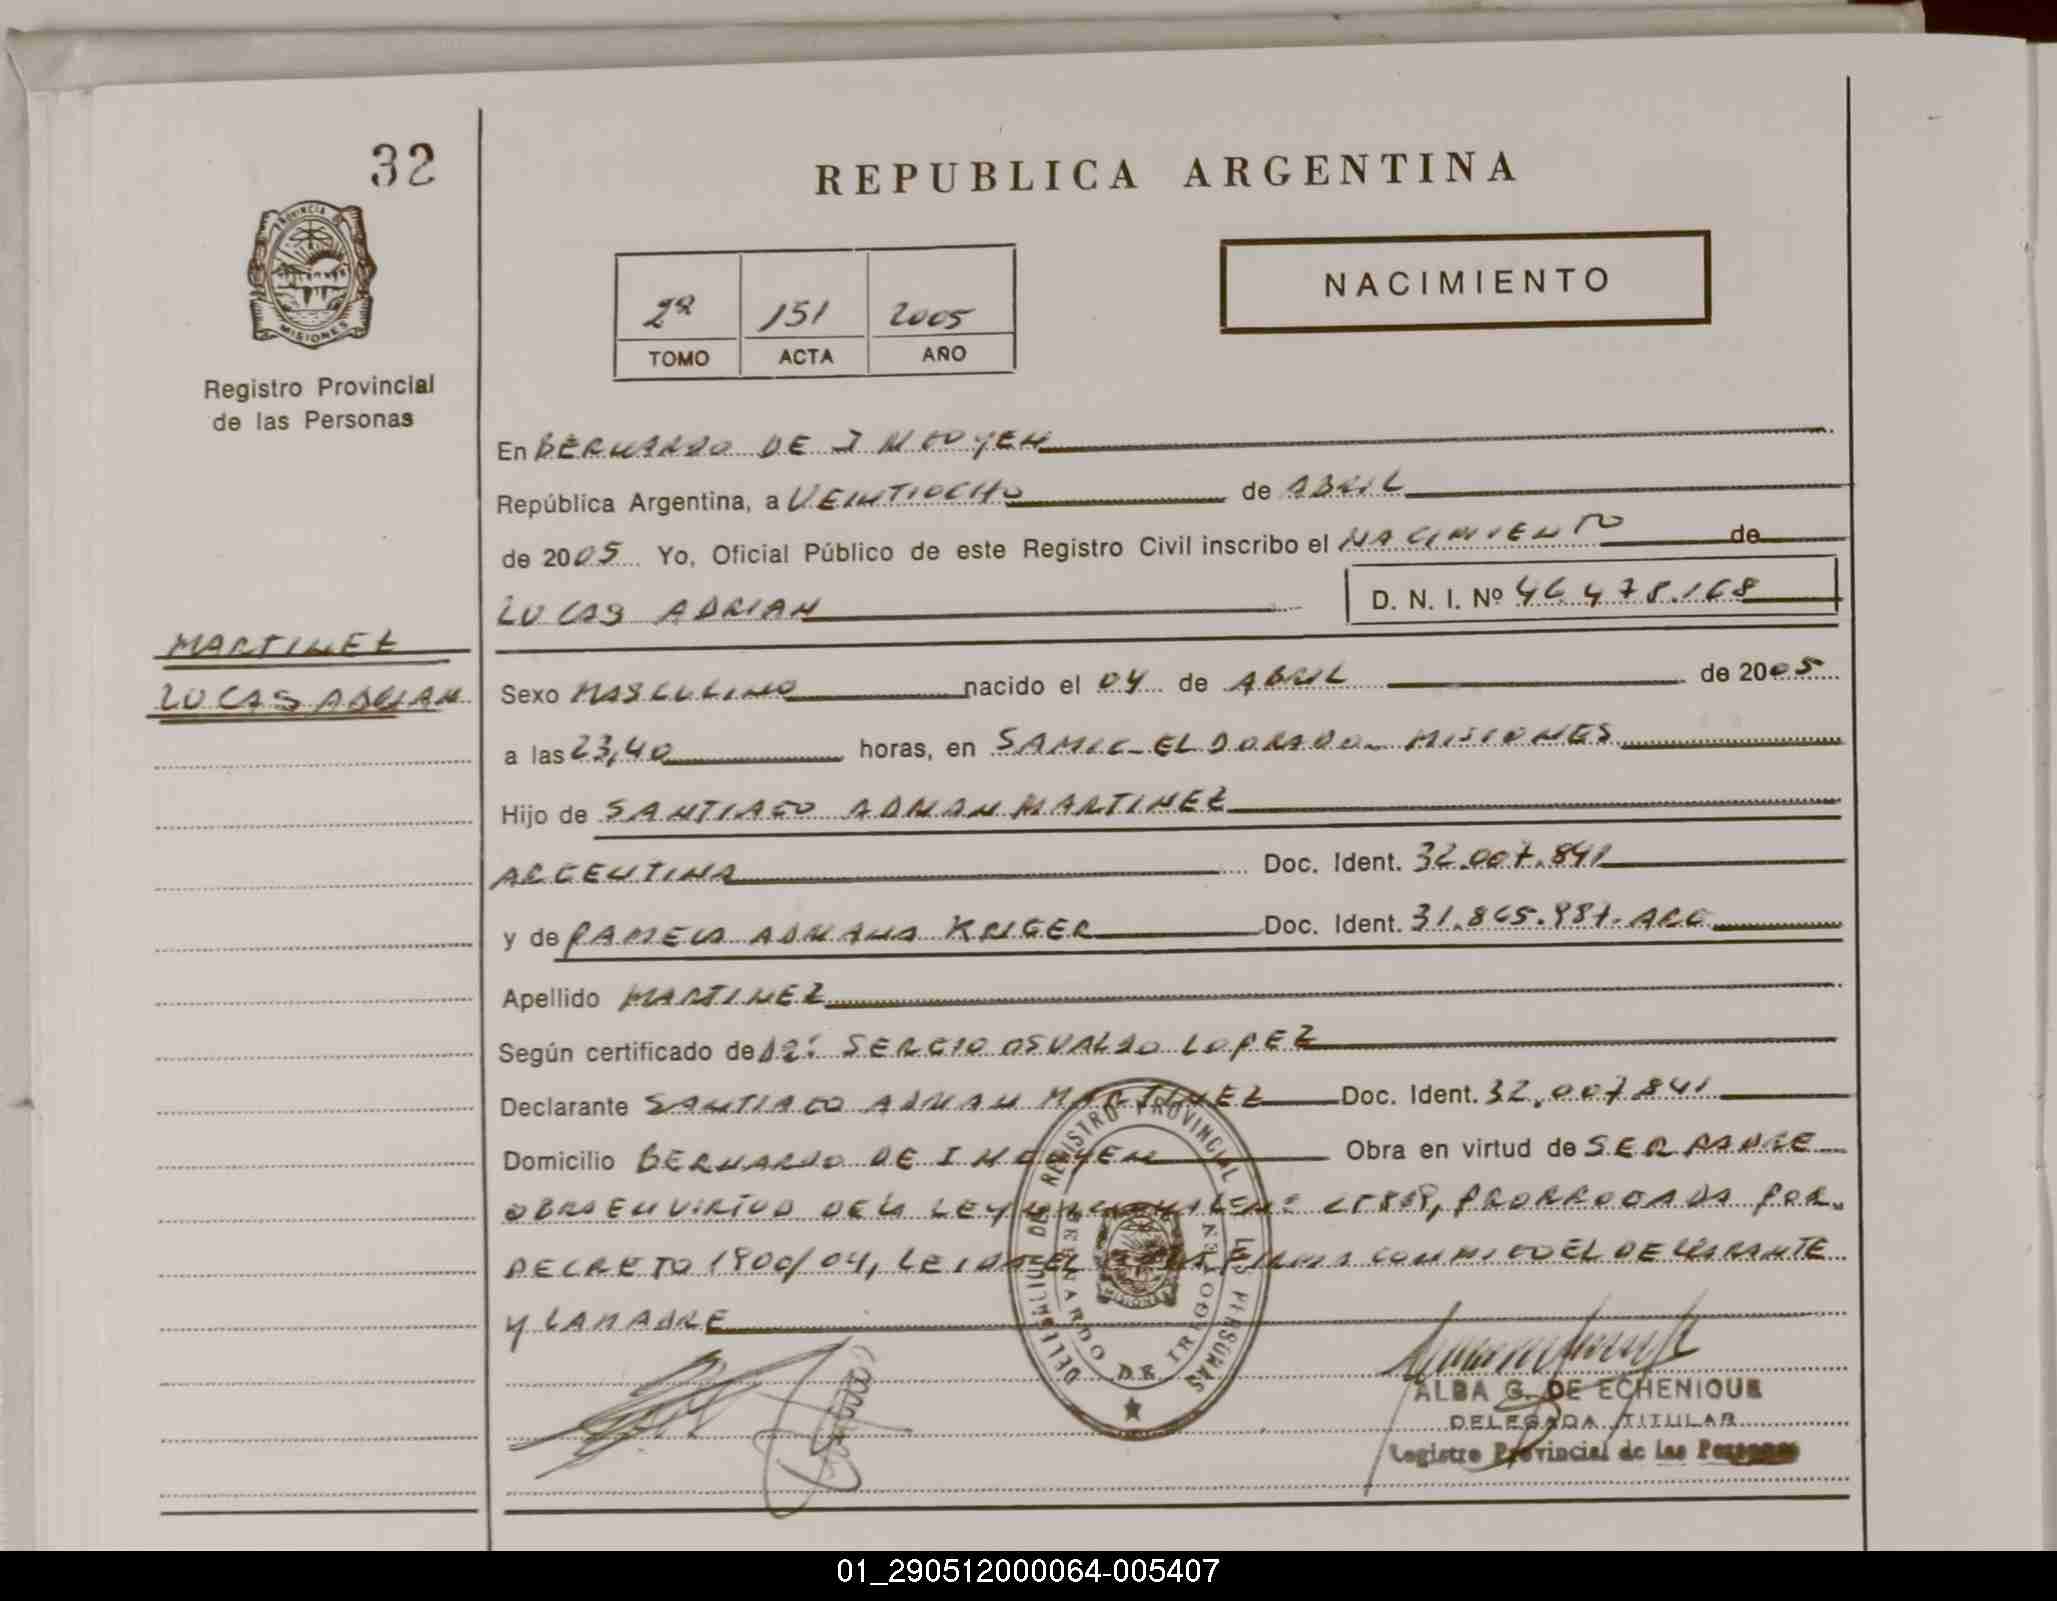 32
REPUBLICA ARGENTINA
PROVINCIA DE
MISIONES
Registro Provincial
de las Personas
NACIMIENTO
2º 151 2005
TOMO ACTA AÑO
En BERNARDO DE IRIGOYEN
República Argentina, a VEINTIOCHO de ABRIL
de 2005 Yo, Oficial Público de este Registro Civil inscribo el NACIMIENTO de
LUCAS ADRIAN D. N. I. Nº 46.478.168
MARTINEZ
LUCAS ADRIAN
Sexo MASCULINO nacido el 04 de ABRIL de 2005
a las 23,40 horas, en SAMIC - ELDORADO - MISIONES
Hijo de SANTIAGO ADRIAN MARTINEZ
ARGENTINA Doc. Ident. 32.007.841
y de PAMELA ADRIANA KRIGER Doc. Ident. 31.865.987. ARG
Apellido MARTINEZ
Según certificado de DR: SERGIO OSVALDO LOPEZ
Declarante SANTIAGO ADRIAN MARTINEZ Doc. Ident. 32.007.841
Domicilio BERNARDO DE IRIGOYEN Obra en virtud de SER PADRE
OBRO EN VIRTUD DE LA LEY Nº 25819, PRORROGADA POR
DECRETO 1900/04, LEIDA EL ACTA FIRMA CONMIGO EL DECLARANTE
Y LA MADRE
REGISTRO PROVINCIAL DE LAS PERSONAS
BERNARDO DE IRIGOYEN
MISIONES
ALBA G. DE ECHENIQUE
DELEGADA TITULAR
Registro Provincial de las Personas
01_290512000064-005407